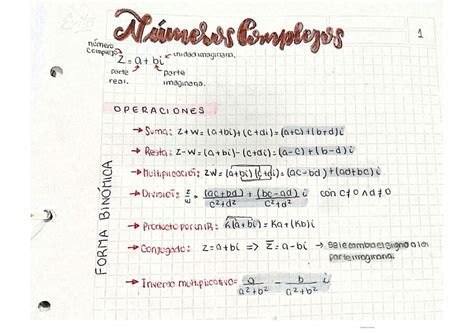 Números Complejos
1
número complejo
Z = a + bi
unidad imaginaria.
parte real.
parte imaginaria.
OPERACIONES
FORMA BINÓMICA
→ Suma: z+w = (a+bi)+(c+di) = (a+c)+(b+d) i
→ Resta: z-w = (a+bi)-(c+di) = (a-c)+(b-d) i
→ Multiplicación: zw = (a+bi)(c+di) = (ac-bd)+(ad+bc) i
→ División: z/w = (ac+bd)/(c²+d²) + (bc-ad)/(c²+d²) i con c≠0 ∧ d≠0
→ Producto por un IR: K(a+bi) = Ka+(Kb) i
→ Conjugado: z = a+bi => z̅ = a-bi → Se le cambia el signo a la
parte imaginaria.
→ Inverso multiplicativo = a/(a²+b²) - b/(a²+b²) i